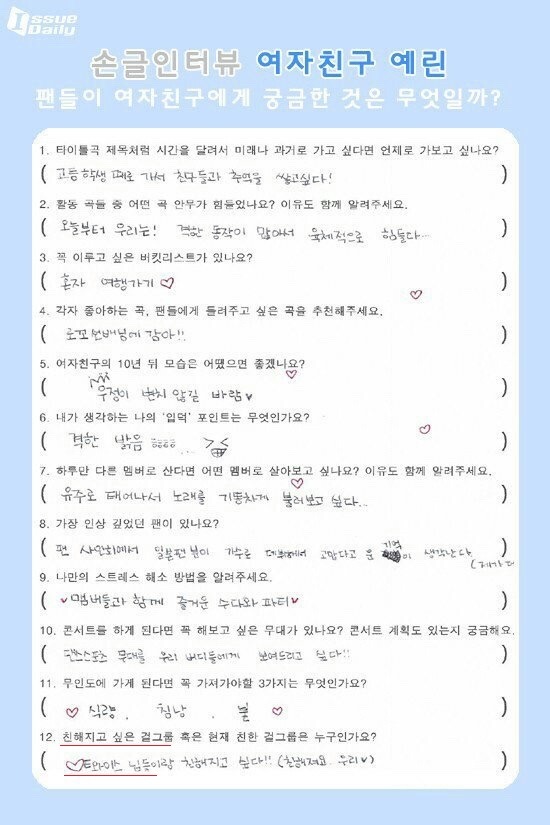 Issue Daily
손글인터뷰 여자친구 예린
팬들이 여자친구에게 궁금한 것은 무엇일까?
1. 타이틀곡 제목처럼 시간을 달려서 미래나 과거로 가고 싶다면 언제로 가보고 싶나요?
( 고등학생 때로 가서 친구들과 추억을 쌓고싶다! )
2. 활동 곡들 중 어떤 곡 안무가 힘들었나요? 이유도 함께 알려주세요.
( 오늘부터 우리는! 격한 동작이 많아서 육체적으로 힘들다... )
3. 꼭 이루고 싶은 버킷리스트가 있나요?
( 혼자 여행가기 ♡ )
4. 각자 좋아하는 곡, 팬들에게 들려주고 싶은 곡을 추천해주세요.
( 로꼬선배님에 감아!! )
5. 여자친구의 10년 뒤 모습은 어땠으면 좋겠나요?
( 우정이 변치 않길 바람♥ )
6. 내가 생각하는 나의 '입덕' 포인트는 무엇인가요?
( 격한 밝음 )
7. 하루만 다른 멤버로 산다면 어떤 멤버로 살아보고 싶나요? 이유도 함께 알려주세요.
( 유주로 태어나서 노래를 기똥차게 불러보고 싶다... )
8. 가장 인상 깊었던 팬이 있나요?
( 팬 사인회에서 일본팬분이 가수로 데뷔해줘서 고맙다고 운 기억이 생각난다 )
9. 나만의 스트레스 해소 방법을 알려주세요.
( ♥ 멤버들과 함께 즐거운 수다와 파티 ♥ )
10. 콘서트를 하게 된다면 꼭 해보고 싶은 무대가 있나요? 콘서트 계획도 있는지 궁금해요.
( 댄스스포츠 무대를 우리 버디들에게 보여드리고 싶다!! )
11. 무인도에 가게 된다면 꼭 가져가야할 3가지는 무엇인가요?
( ♡ 식량, 침낭, 불 ♡ )
12. 친해지고 싶은 걸그룹 혹은 현재 친한 걸그룹은 누구인가요?
( ♡트와이스 님들이랑 친해지고 싶다!! (친해져요 우리♥) )